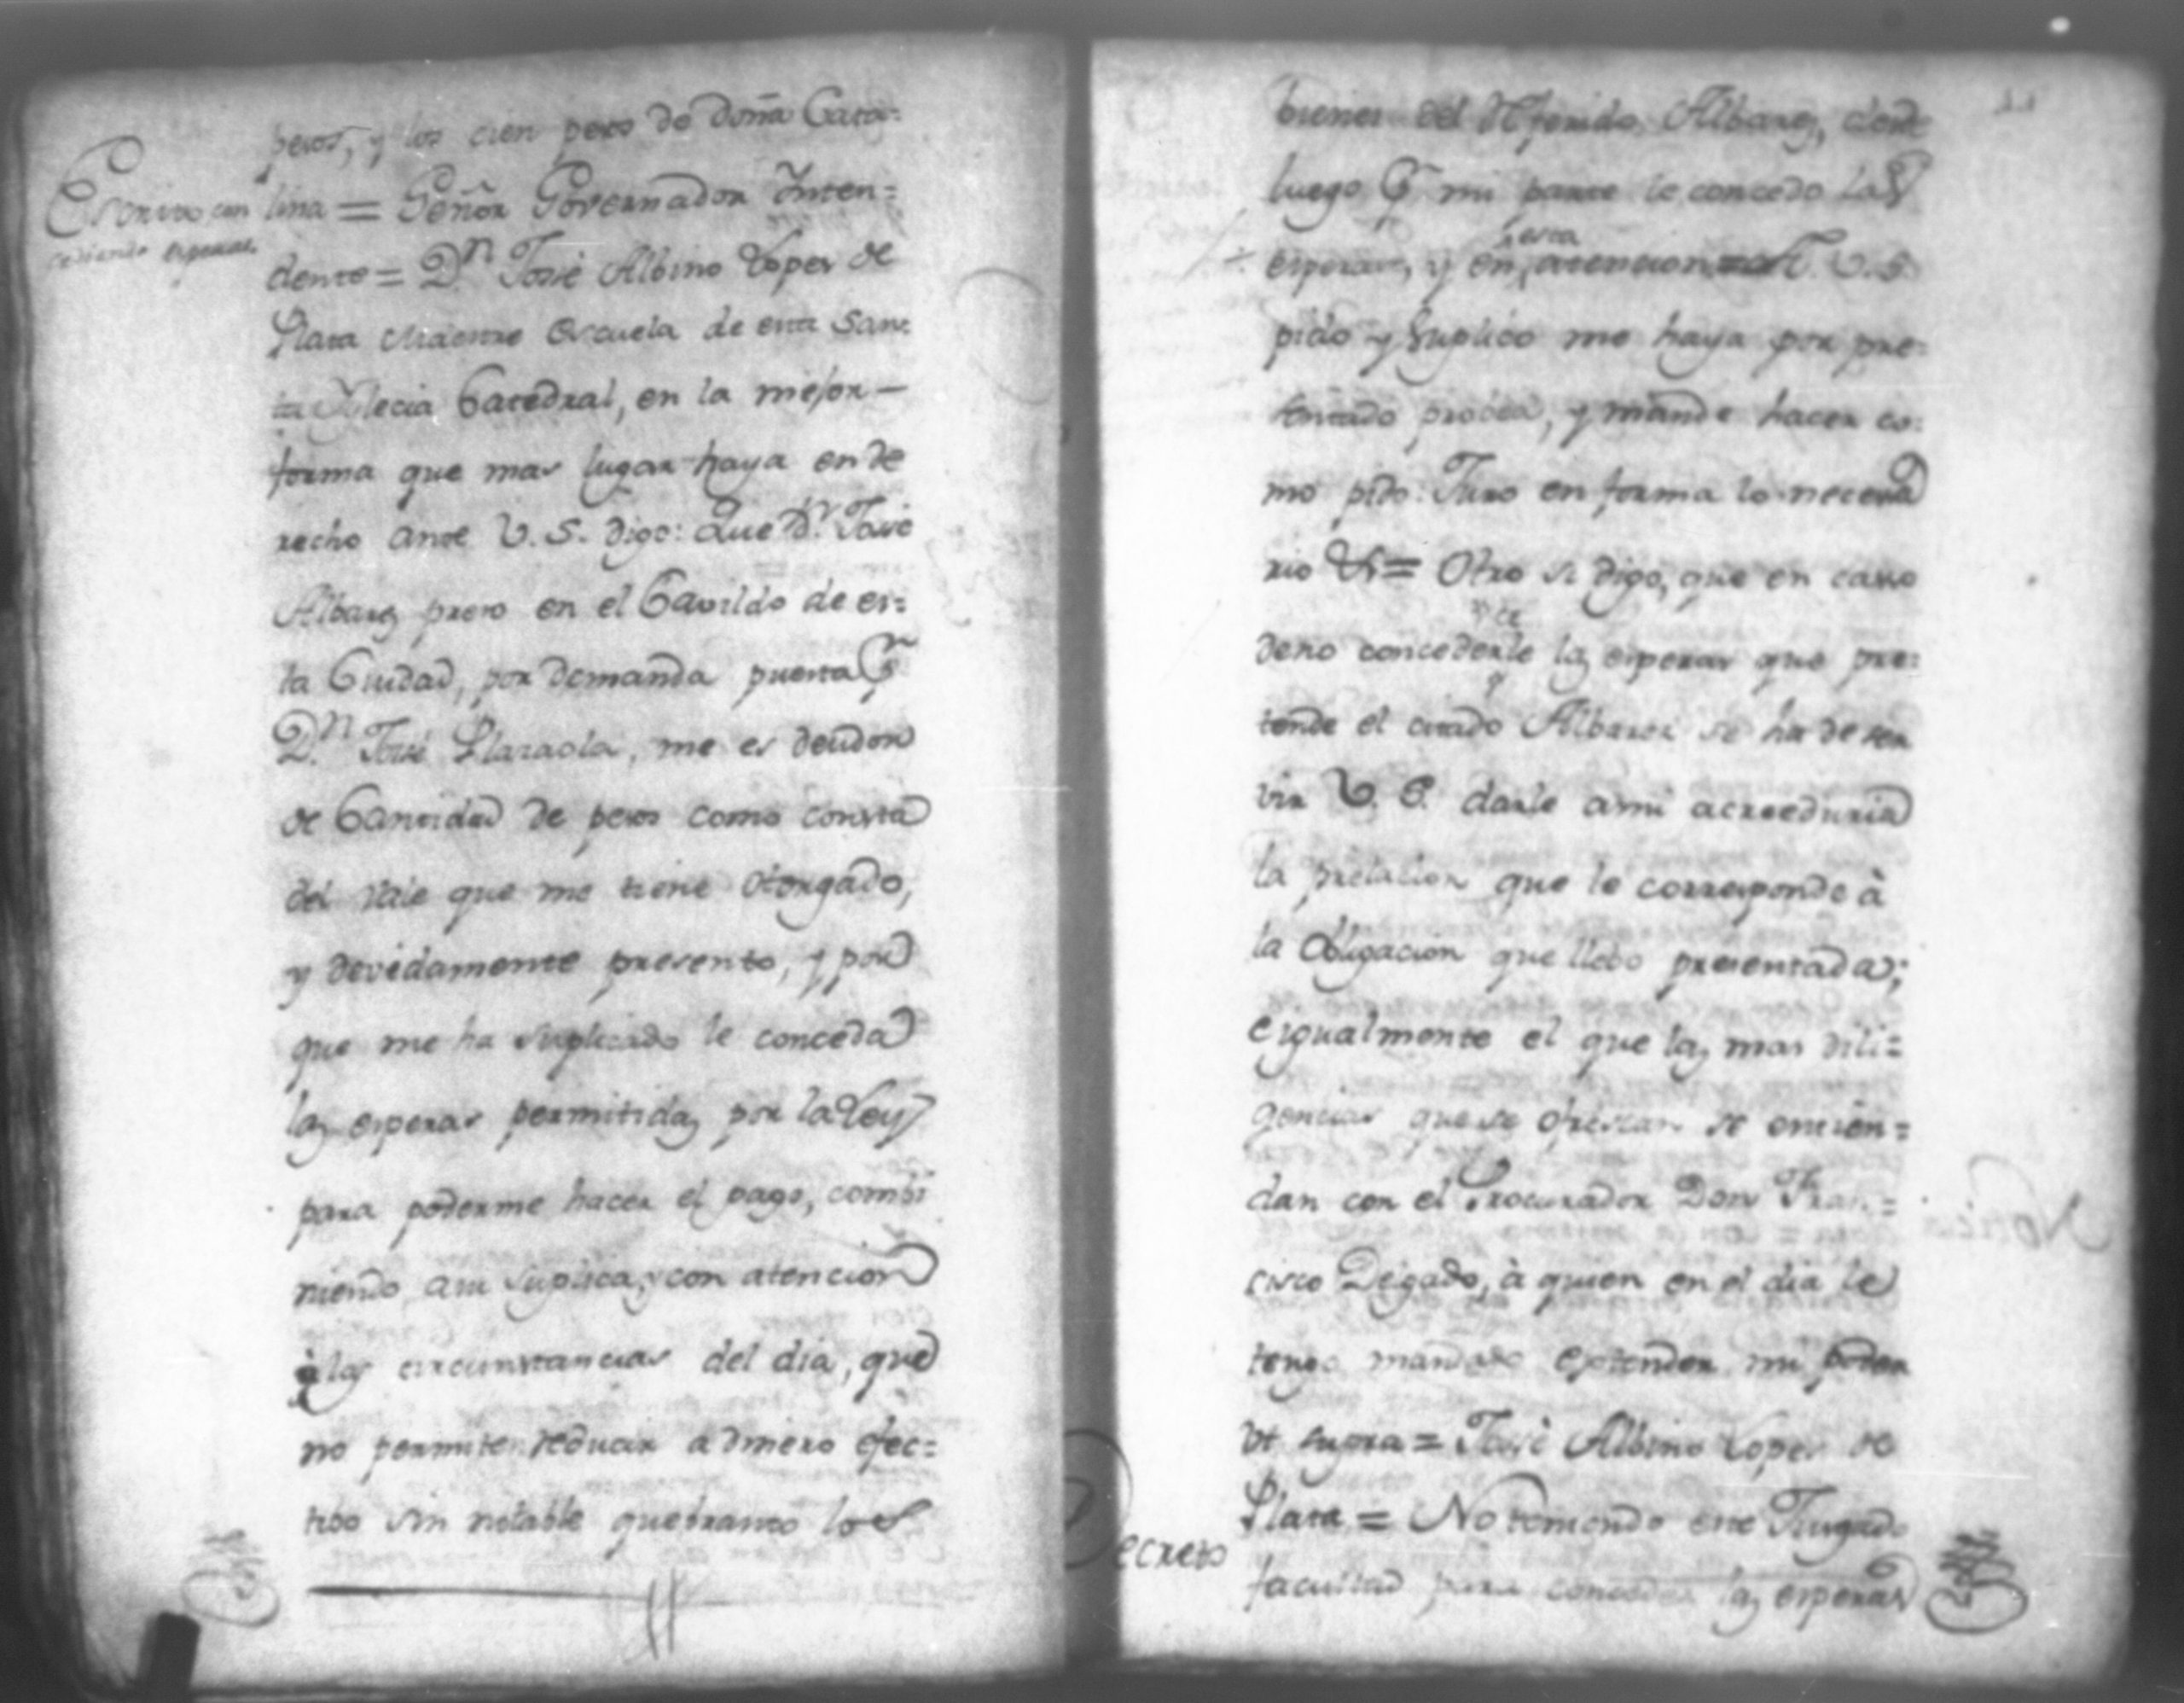 pesos, y los cien pesos de doña Cata=
Escrito con
cediendo esperas.
lina = Señor Governador Inten=
dente = D.n José Albino Lopes de
Plata Maestre Escuela de esta San=
ta Iglecia Catedral, en la mejor —
forma que mas lugar haya en de
recho ante V. S. digo: Que D.n José
Albarez preso en el Cavildo de es=
ta Ciudad, por demanda puesta P.r
D.n José Plazaola, me es deudor
de Cantidad de pesos como consta
del vale que me tiene otorgado,
y devidamente presento, y por
que me ha suplicado le conceda
las esperas permitidas por la Ley
para poderme hacer el pago, combi
niendo a su suplica, y con atencion
à las circunstancias del dia, que
no permiten reducir a dinero efec=
tibo sin notable quebranto los
bienes del referido Albarez, desde
luego P.r mi parte le concedo las
esperas, y en esta atencion A. V. S.
pido y suplico me haya por pre=
sentado provea, y mande hacer co=
mo pido: Juro en forma lo necesa
rio &.a = Otro si digo, que en caso
de no concederle las esperas que pre=
tende el citado Albarez se ha de ser
vir V. S. darle a mi acreeduria
la prelacion que le corresponde à
la obligacion que llebo presentada;
e igualmente el que las mas dili=
gencias que se ofrescan se entien=
dan con el Procurador Don Fran=
cisco Delgado, à quien en el dia le
tengo mandado extender mi poder
ut supra = José Albino Lopes de
Plata = No teniendo este Jusgado
Decreto
facultad para conceder las esperas